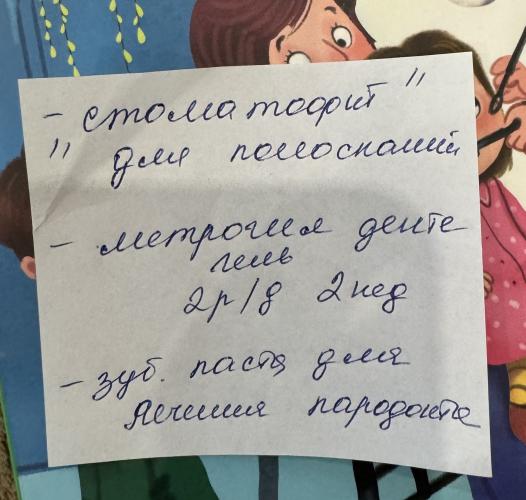 - стоматофит "
" для полоскания
- метрогил денте
гель
2р/д 2нед
- зуб. паста для
лечения пародонта